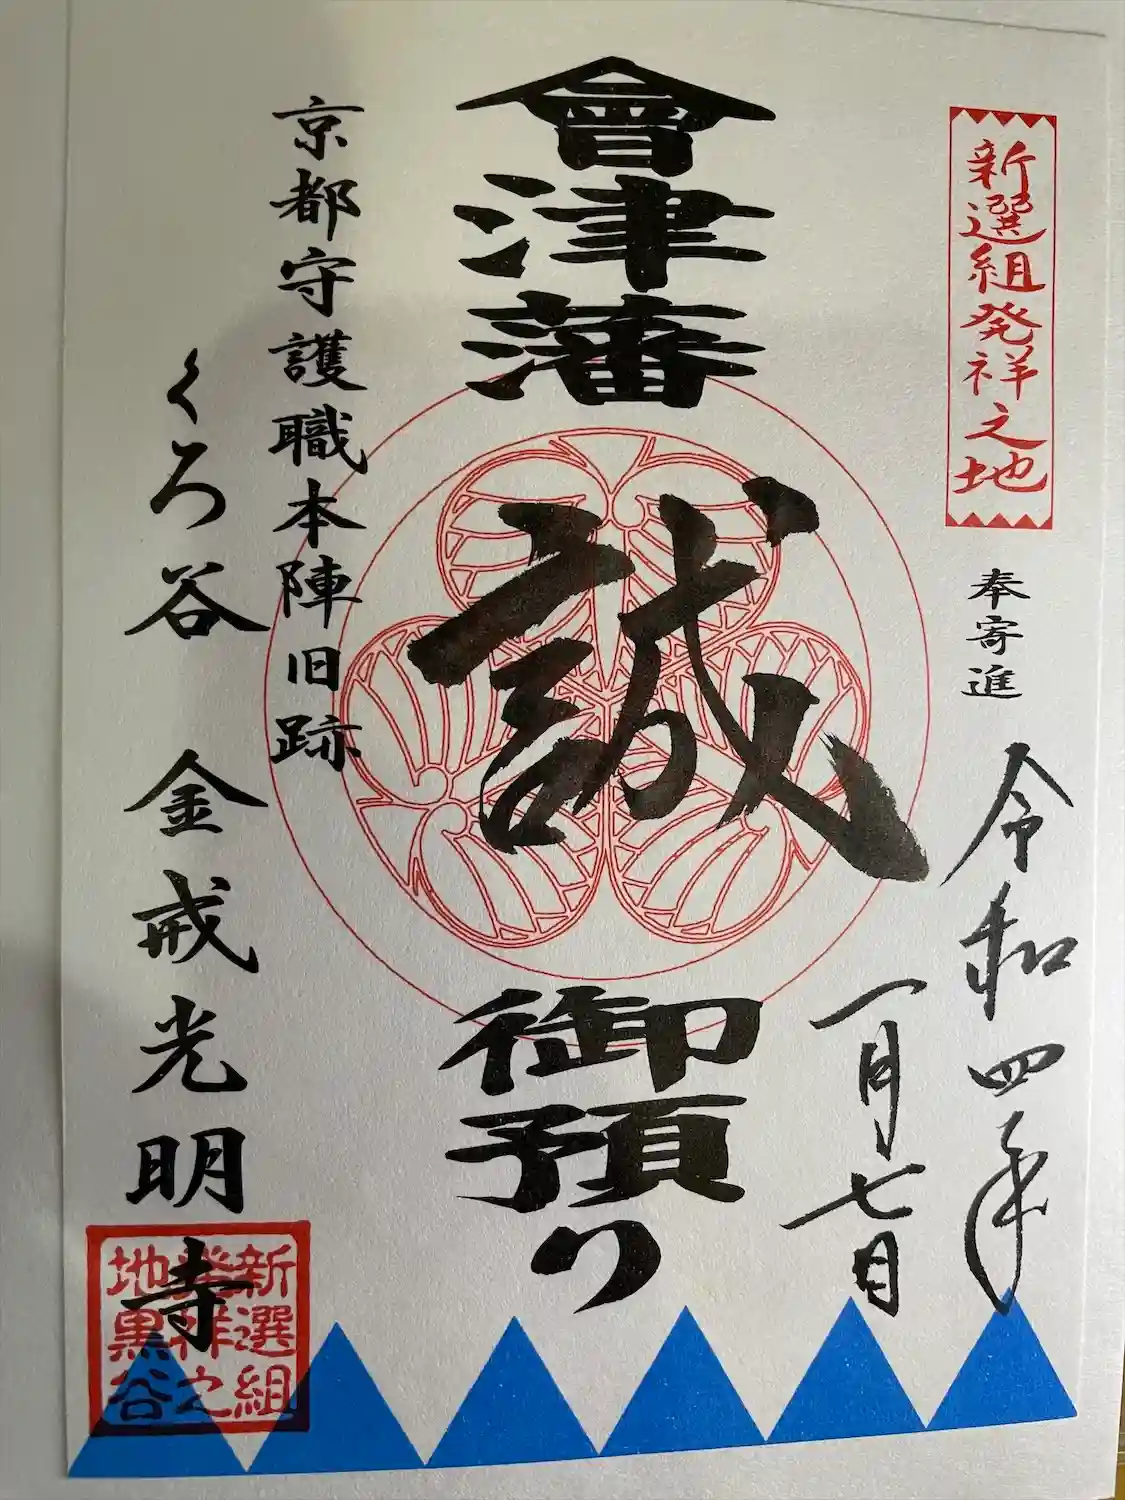 新選組発祥之地
奉寄進
令和四年
一月七日
會津藩
誠
御預り
京都守護職本陣旧跡
くろ谷 金戒光明寺
新選組
発祥之
地黒谷